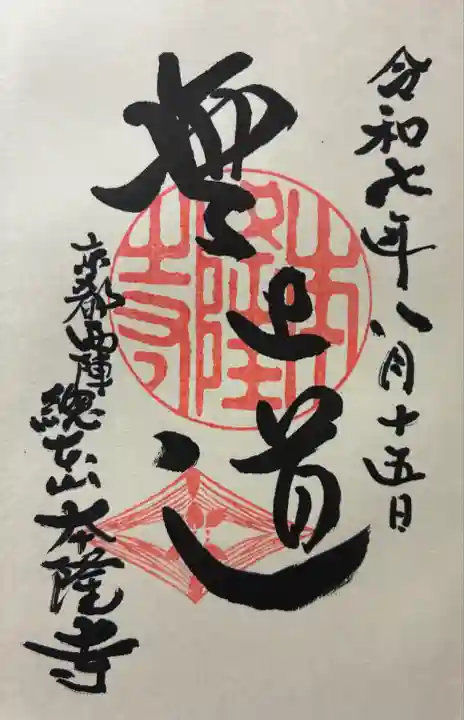 令和七年八月十五日
無上道
京都西陣 総本山 本隆寺
本隆寺